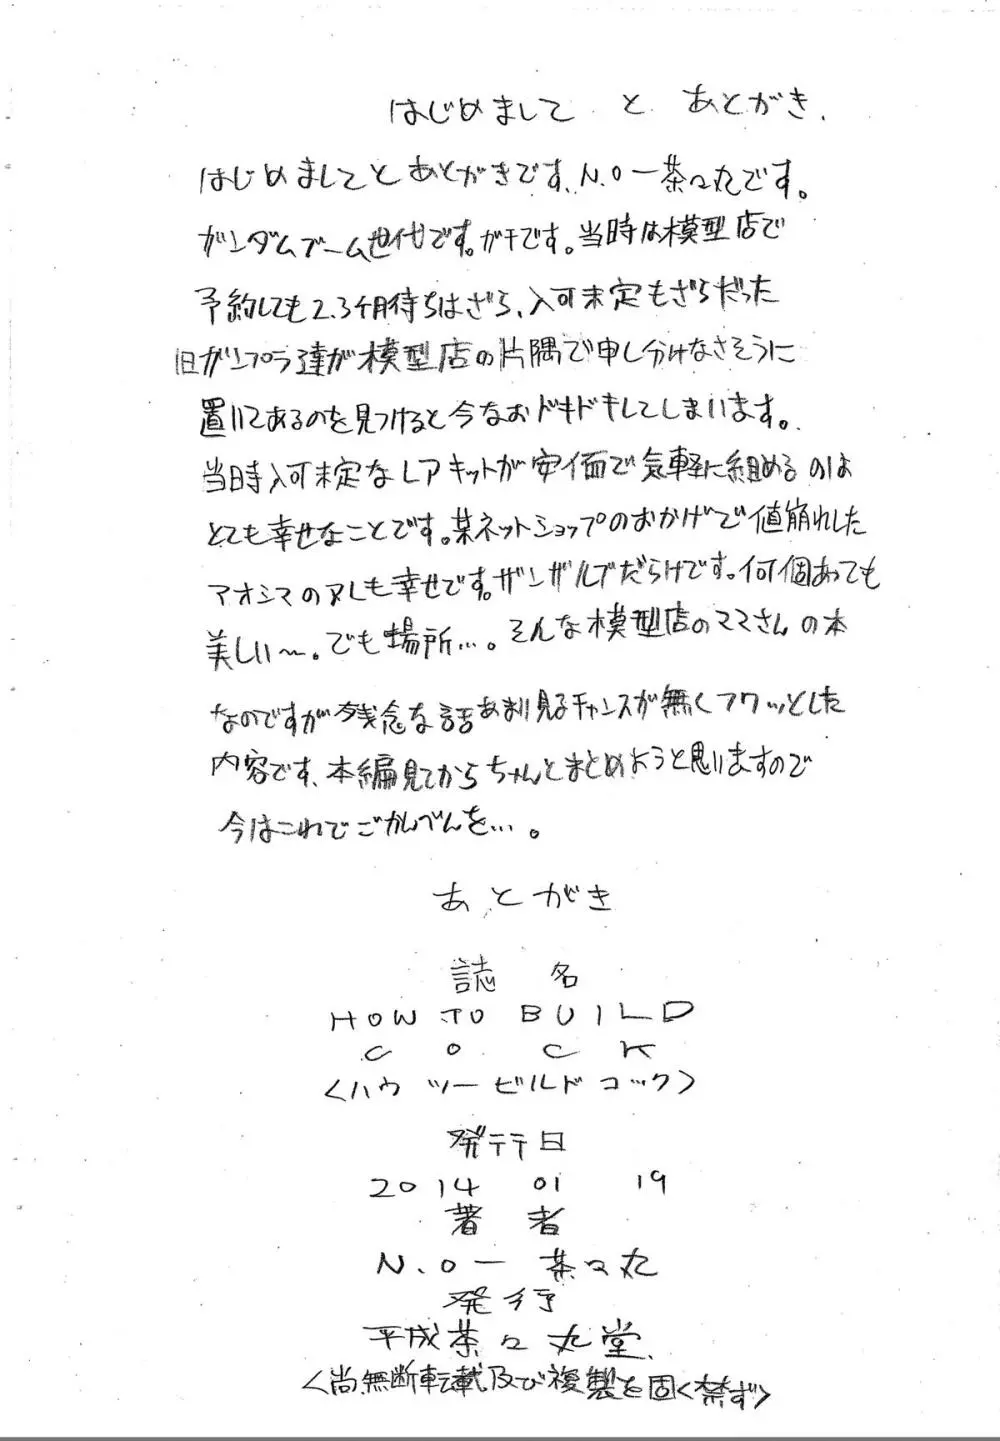 はじめまして と あとがき.
はじめましてとあとがきです、N.O-茶々丸です。
ガンダムブーム世代です。ガチです。当時は模型店で
予約しても2.3ヶ月待ちはざら、入可未定もざらだった
旧ガンプラ達が模型店の片隅で申し分けなさそうに
置いてあるのを見つけると今なおドキドキしてしまいます。
当時入可未定なレアキットが安価で気軽に組めるのは
とても幸せなことです。某ネットショップのおかげで値崩れした
アオシマのヌしも幸せです。ザンザルブだらけです。何個あっても
美しい〜。でも場所…。そんな模型店のママさんの本
なのですが残念な話あまり見るチャンスが無くフワッとした
内容です、本編見てからちゃんとまとめようと思いますので
今はこれでごかんべんを…。
あとがき
誌 名
HOW TO BUILD
C O C K
<ハウ ツー ビルド コック>
発行日
2014 01 19
著 者
N.O-茶々丸
発行
平成茶々丸堂.
<尚無断転載及び複製を固く禁ず>